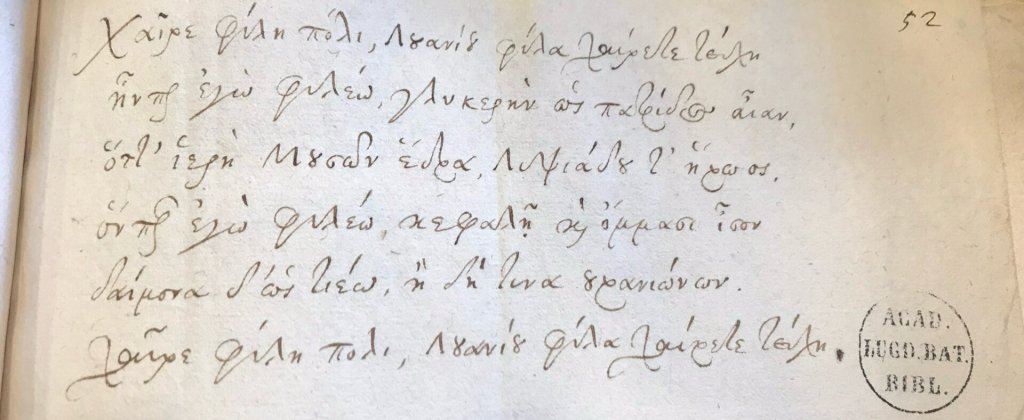 52
Χαῖρε φίλη πόλι, Λȣανίȣ φίλα χαίρετε τείχη
ἥνπερ ἐγὼ φιλέω, γλυκερὴν ὡς πατρίδος αἶαν,
ὅττ' ἱερὴ Μȣσῶν ἕδρα, Λιψιάδȣ τ' ἥρωος,
ὅνπερ ἐγὼ φιλέω, κεφαλῇ κỳ ὄμμασι ἶσον
δαίμονα δ' ὡς τιέω, ἢ δή τινα ȣρανιώνων.
χαῖρε φίλη πόλι, Λȣανίȣ φίλα χαίρετε τείχη.
ACAD.
LUGD. BAT.
BIBL.